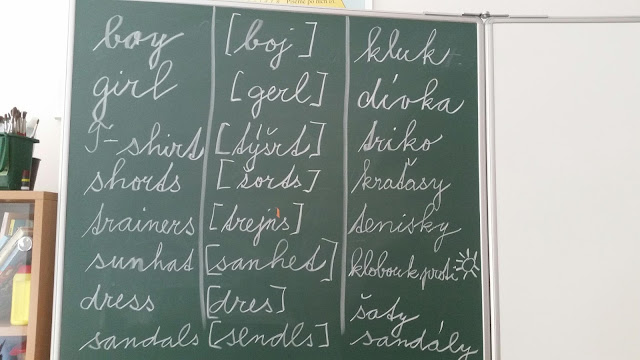 boy [boj] kluk
girl [gerl] dívka
T-shirt [týšrt] triko
shorts [šorts] kraťasy
trainers [trejns] tenisky
sunhat [sanhet] klobouk proti
dress [dres] šaty
sandals [sendls] sandály